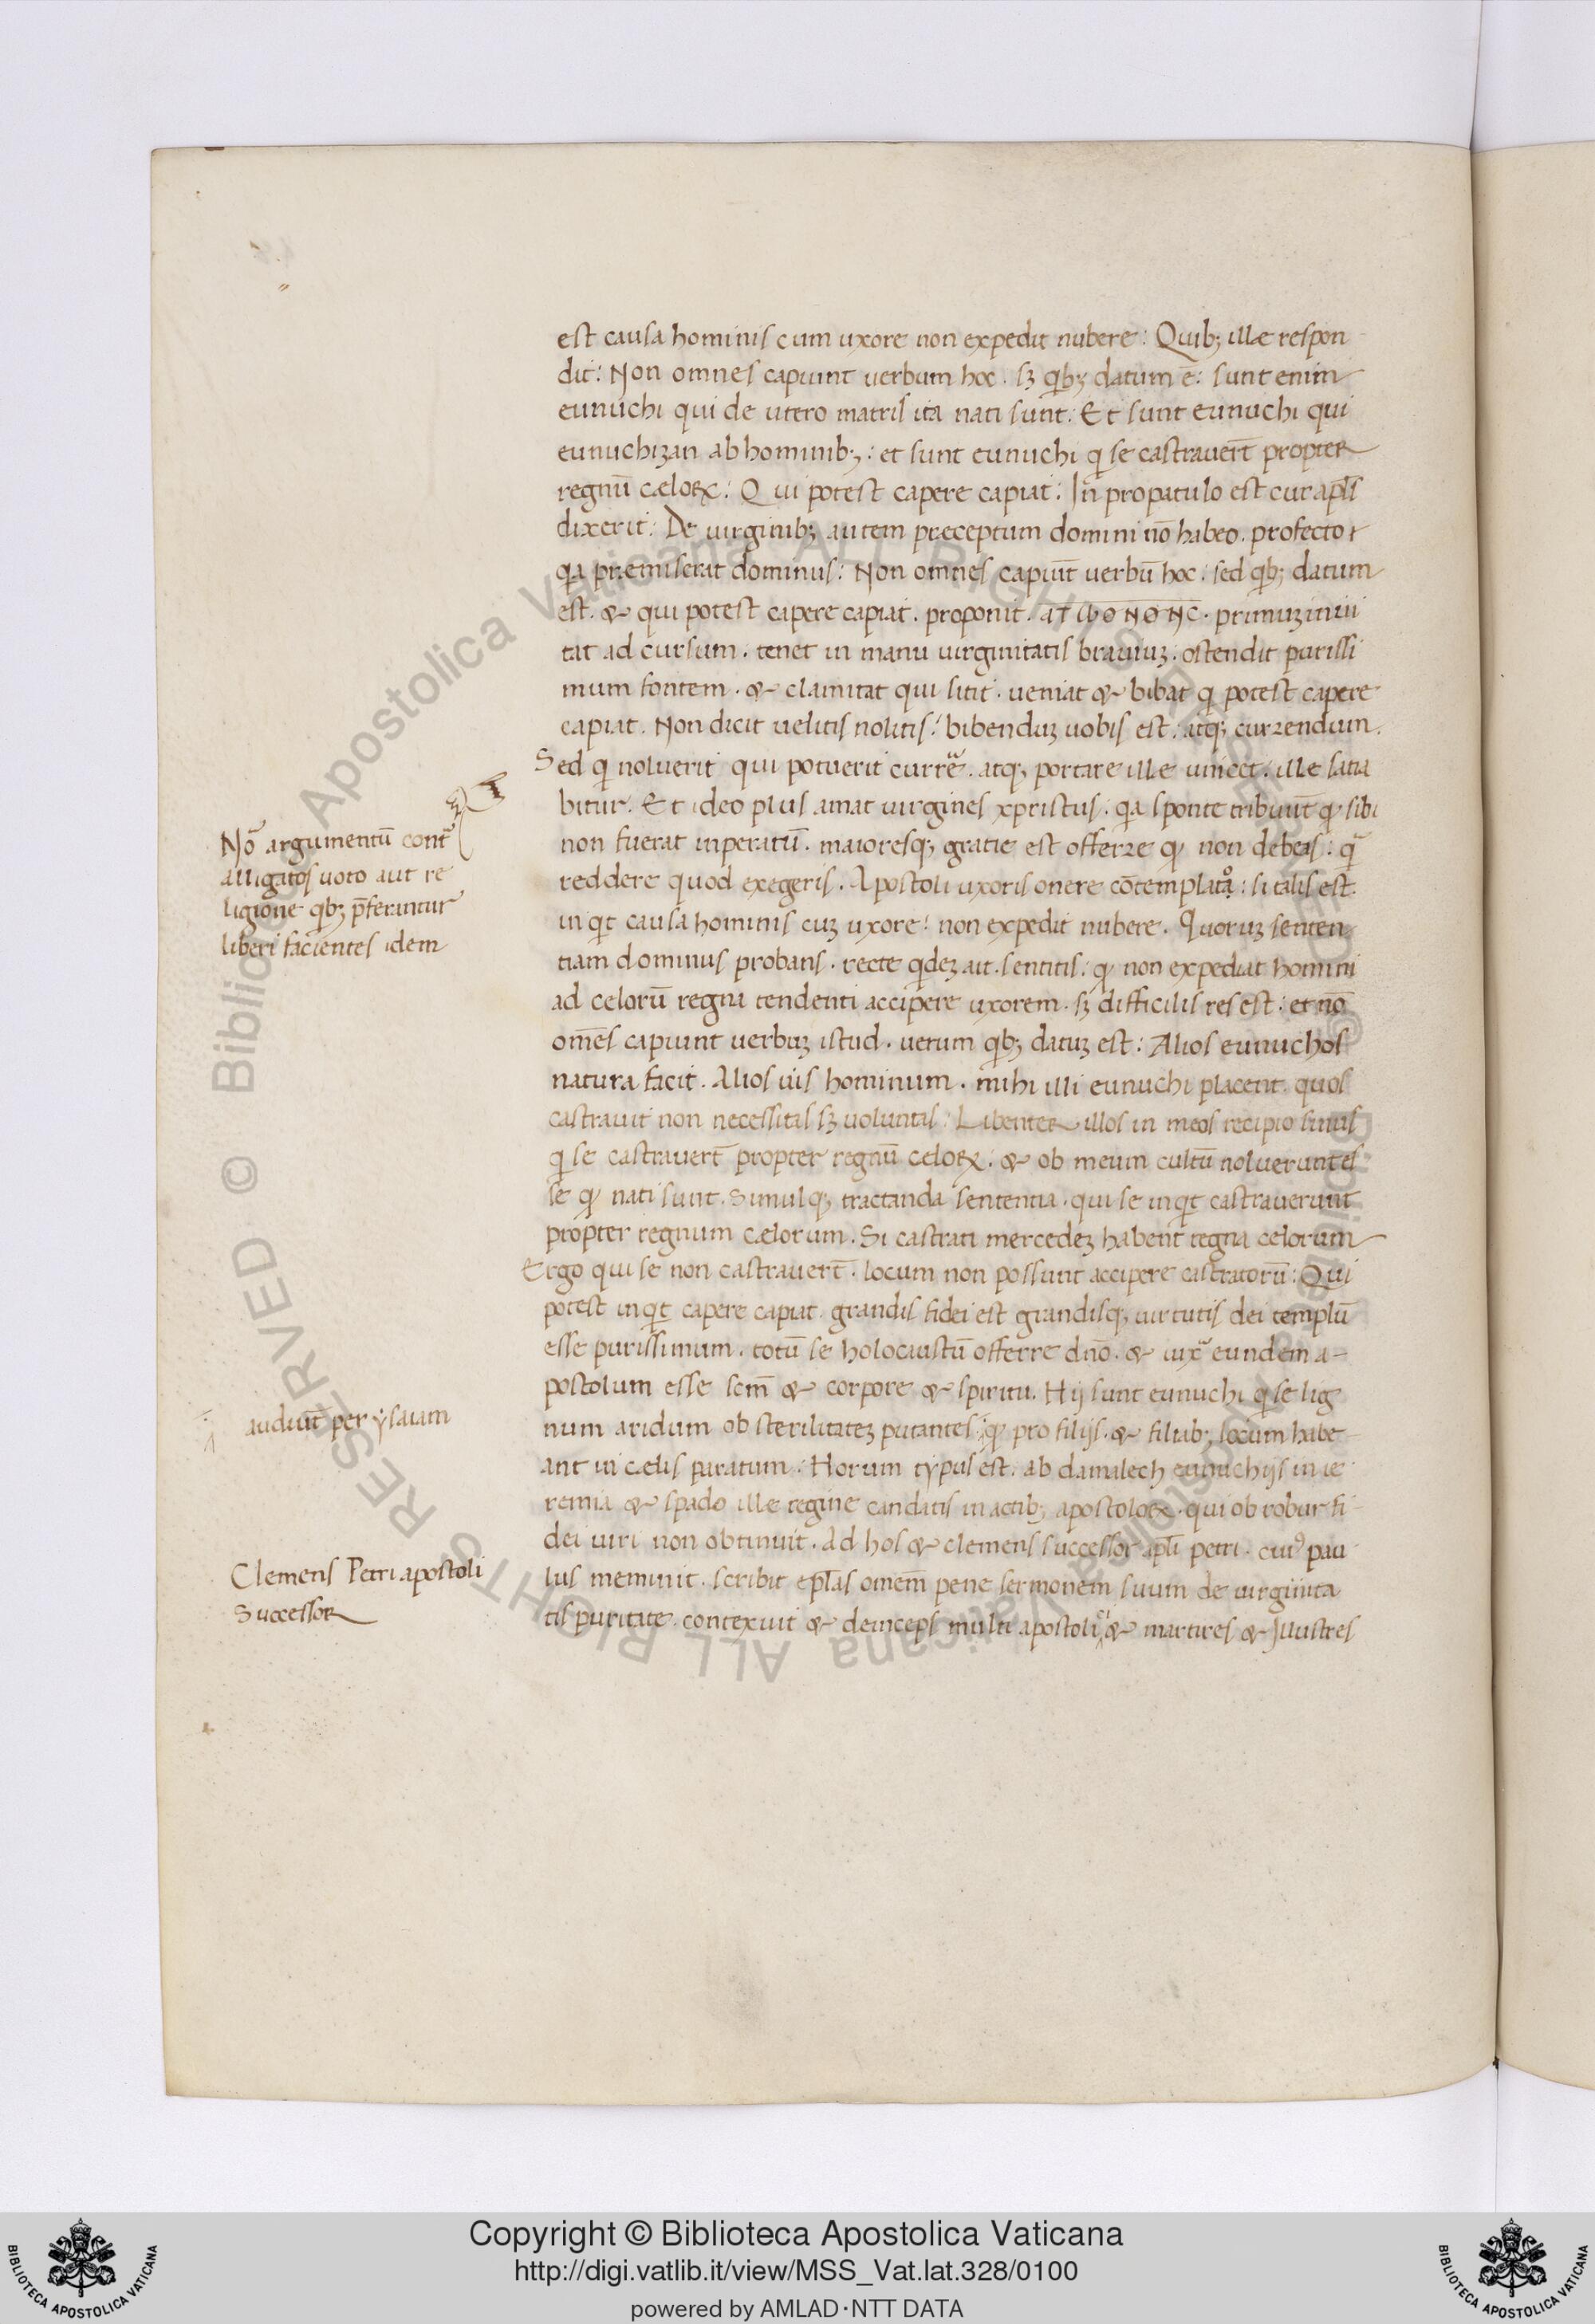 est causa hominis cum uxore non expedit nubere: Quib; ille respon
dit: Non omnes capiunt uerbum hoc. sꝫ qͥb; datum ē: sunt enim
eunuchi qui de utero matris ita nati sunt: Et sunt eunuchi qui
eunuchizan ab hominib;: et sunt eunuchi qͥ se castrauer̄t propter
regnū cæloꝝ: Qui potest capere capiat: In propatulo est cur apl̄s
dixerit: De uirginib; autem preceptum domini nō habeo. profecto
qͥa præmiserat dominus: Non omnes capiūt uerbū hoc: sed qͥb; datum
est. & qui potest capere capiat. proponit. primuꝫ inui
tat ad cursum. tenet in manu uirginitatis brauiuꝫ. ostendit purissi
mum fontem. & clamitat qui sitit. ueniat & bibat qͥ potest capere
capiat. Non dicit uelitis nolitis: bibenduꝫ uobis est: atq; currendum.
Sed qͥ noluerit qui potuerit currere. atq; portare ille uincet: ille satia
bitur. Et ideo plus amat uirgines xpristus: qͥa sponte tribuūt qͥ sibi
non fuerat inperatū. maioresq; gratie est offerre qͥ non debeas: qͣ
reddere quod exegeris. Apostoli uxoris onere cōtemplato: si talis est
inqͥt causa hominis cuꝫ uxore: non expedit nubere. Quoruꝫ senten
tiam dominus probans. recte qͥdeꝫ ait. sentitis: qͥ non expediat homini
ad celorū regna tendenti accipere uxorem. sꝫ difficilis res est: et nō
om̄es capiunt uerbuꝫ istud. uerum qͥb; datuꝫ est: Alios eunuchos
natura facit. Alios uis hominum. mihi illi eunuchi placent. quos
castrauit non necessitas sꝫ uoluntas: Libenter illos in meos recipio sinus
qͥ se castrauer̄t propter regnū celoꝝ: & ob meum cultū noluerunt es
se qͥ nati sunt. Simulq; tractanda sententia. qui se inqͥt castrauerunt
propter regnum cælorum. Si castrati mercedeꝫ habent regna celorum
Ergo qui se non castrauer̄t. locum non possunt accipere castratorū: Qui
potest inqͥt capere capiat. grandis fidei est grandisq; uirtutis dei templū
esse purissimum. totū se holocaustū offerre dn̄o. & iuxͣ eundem a-
postolum esse scm̄ & corpore & spiritu. Hij sunt eunuchi qͥ se lig
num aridum ob sterilitateꝫ putantes: qͥ pro filijs. & filiab; locum habe
ant in cælis paratum. Horum typus est. ab damalech eunuchijs in ie
remia & spado ille regine candatis in actib; apostoloꝝ. qui ob robur fi-
dei uiri non obtinuit. Ad hos & clemens successor apl̄i petri. cuiꝰ pau
lus meminit. scribit epl̄as omēm pene sermonem suum de uirginita
tis puritate. contexuit & deinceps multi apostoli & martires & Illustres
Nō argumentū contͣ
alligatos uoto aut re
ligione qͥb; p̄feruntur
liberi facientes idem
audiūt per ysaiam
Clemens Petri apostoli
Successor
Copyright © Biblioteca Apostolica Vaticana
http://digi.vatlib.it/view/MSS_Vat.lat.328/0100
powered by AMLAD·NTT DATA
BIBLIOTECA APOSTOLICA VATICANA
BIBLIOTECA APOSTOLICA VATICANA